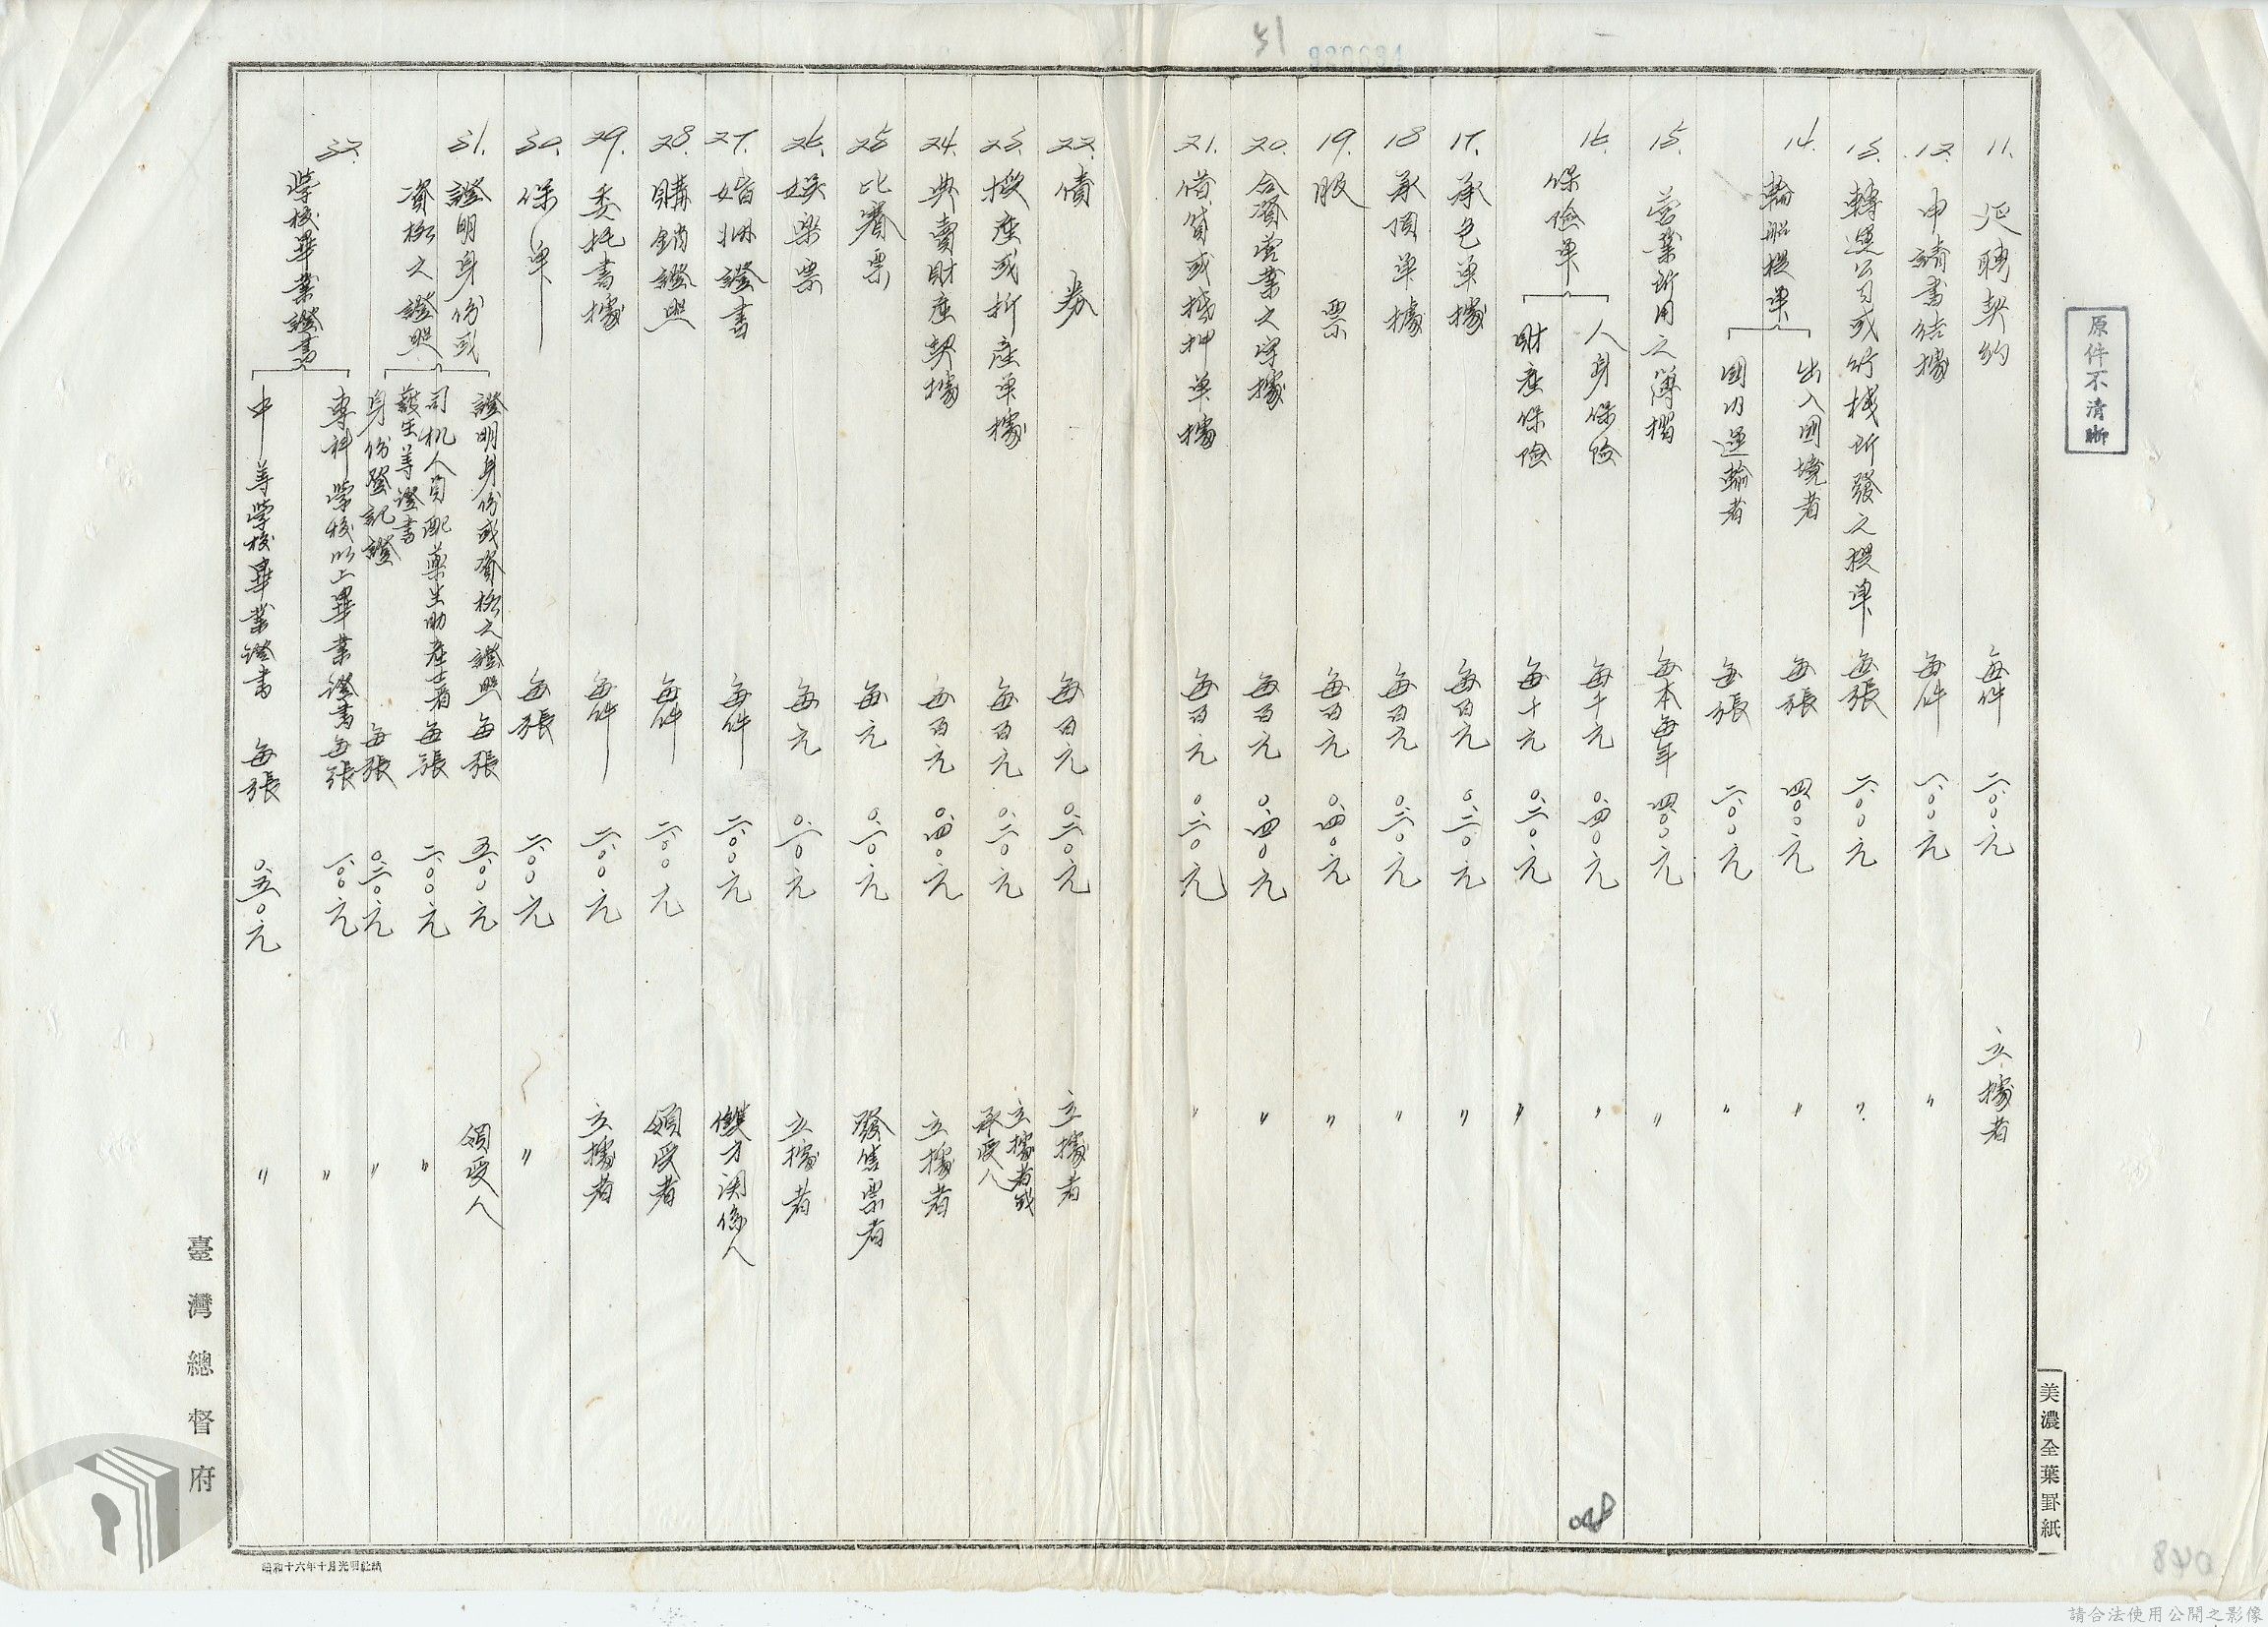 原件不清晰
11. 延聘契約 每件 二.〇〇元 立據者
12. 申請書結據 每件 一.〇〇元 〃
13. 轉運公司或行棧所發之提單 每張 二.〇〇元 〃
14. 輪船提單
出入國境者 每張 四.〇〇元 〃
國內運輸者 每張 二.〇〇元 〃
15. 營業所用之簿摺 每本每年 四.〇〇元 〃
16. 保險單
人身保險 每千元 〇.四〇元 〃
財產保險 每千元 〇.二〇元 〃
17. 承包單據 每百元 〇.二〇元 〃
18 承頂單據 每百元 〇.二〇元 〃
19. 股票 每百元 〇.四〇元 〃
20. 合資營業之字據 每百元 〇.四〇元 〃
21. 借貸或抵押單據 每百元 〇.二〇元 〃
22. 債券 每百元 〇.二〇元 立據者
23. 授產或析產單據 每百元 〇.二〇元 立據者或
承受人
24. 典賣財產契據 每百元 〇.四〇元 立據者
25 比賽票 每元 〇.一〇元 發售票者
26. 娛樂票 每元 〇.一〇元 立據者
27. 婚姻證書 每件 二.〇〇元 雙方關係人
28. 購銷證照 每件 二.〇〇元 領受者
29. 委托書據 每件 二.〇〇元 立據者
30. 保單 每張 二.〇〇元 〃
31. 證明身份或
資格之證照
證明身份或資格之證照 每張 五.〇〇元 領受人
司机人員配藥生助產士看
護生等證書 每張 二.〇〇元 〃
身份登記證 每張 〇.二〇元 〃
32. 學校畢業證書
專科學校以上畢業證書 每張 一.〇〇元 〃
中等學校畢業證書 每張 〇.五〇元 〃
臺灣總督府
美濃全葉罫紙
昭和十六年十月光明社納
840
請合法使用公開之影像